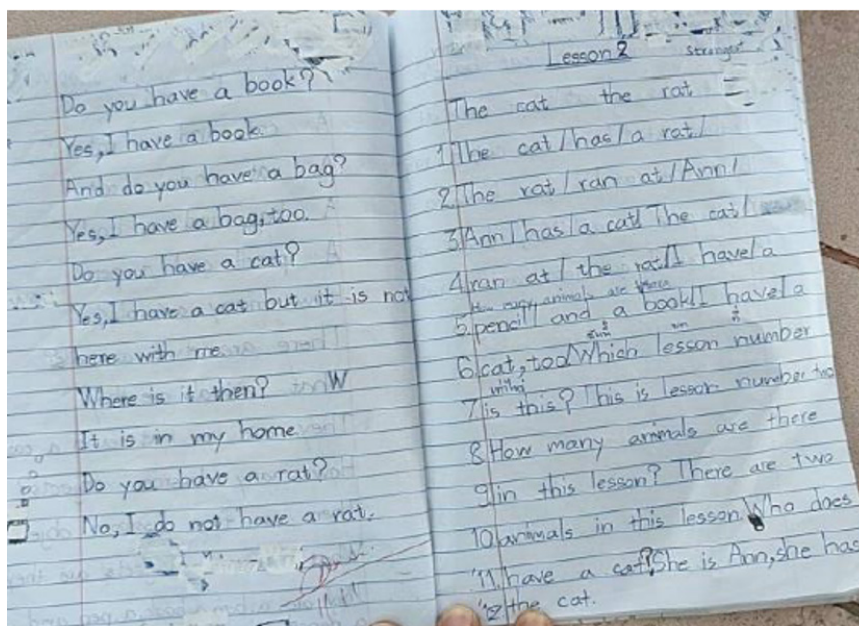 Do you have a book?
Yes, I have a book.
And do you have a bag?
Yes, I have a bag, too.
Do you have a cat?
Yes, I have a cat but it is not
here with me.
Where is it then? W
It is in my home.
Do you have a rat?
No, I do not have a rat.
Lesson 2
Stronger
The cat the rat
1 The cat / has / a rat /
2 The rat / ran at / Ann /
3 Ann / has / a cat / The cat /
4 ran at / the rat // I have / a
How many animals are there
5 pencil / and a book // I have / a
6 cat, too // Which lesson number
7 is this? This is lesson number two
8 How many animals are there
9 in this lesson? There are two
10 animals in this lesson. Who does
11 have a cat? She is Ann, she has
12 the cat.